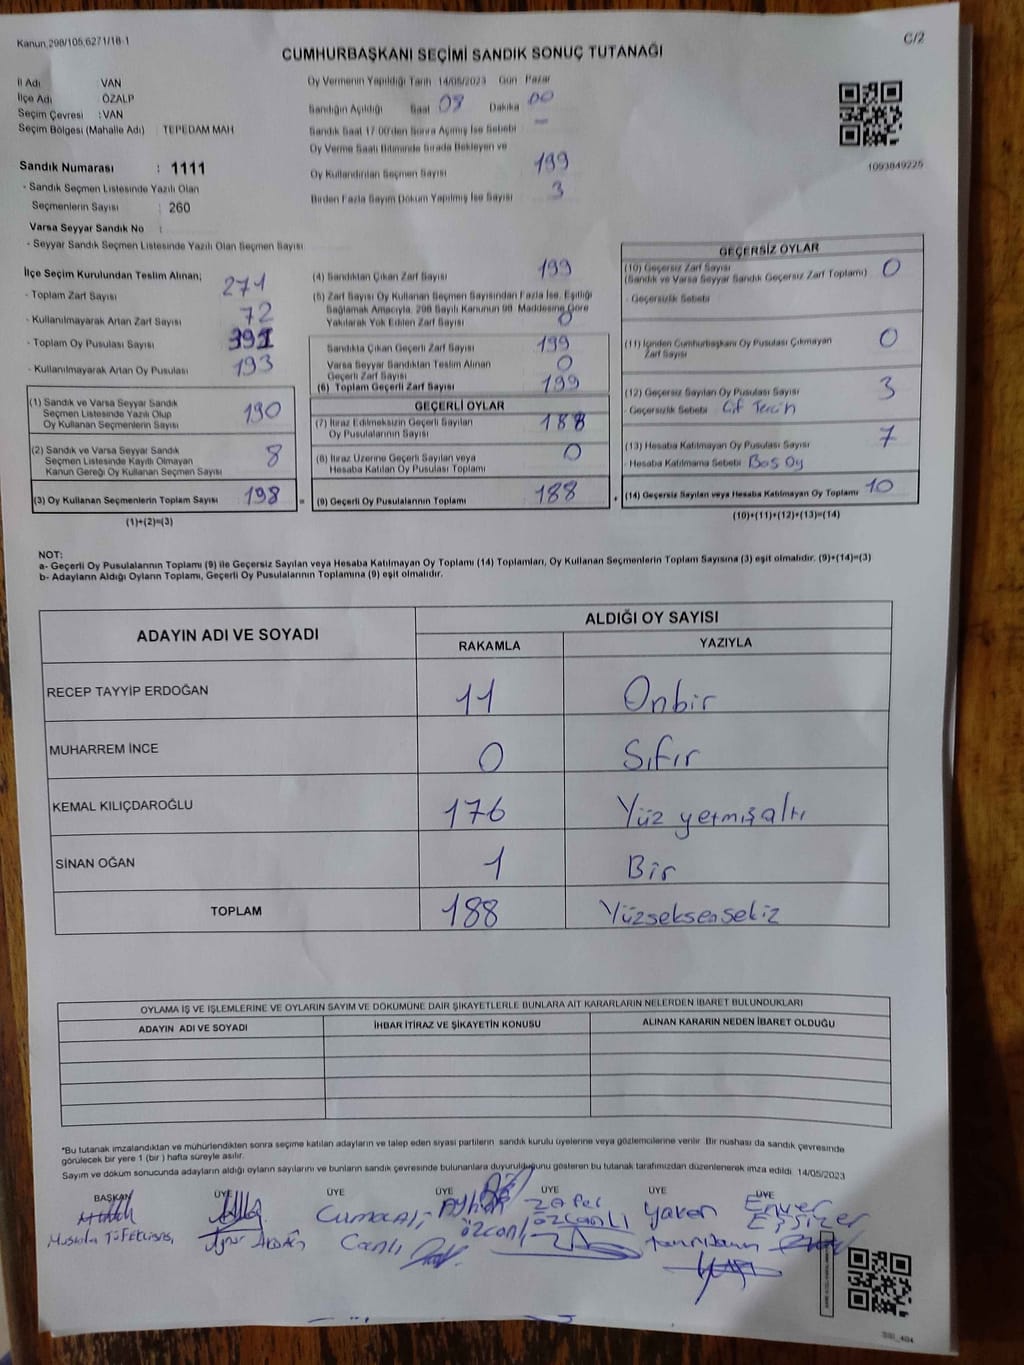 Kanun,298/105,6271/18-1
C/2
CUMHURBAŞKANI SEÇİMİ SANDIK SONUÇ TUTANAĞI
İl Adı : VAN
İlçe Adı : ÖZALP
Seçim Çevresi : VAN
Seçim Bölgesi (Mahalle Adı) : TEPEDAM MAH
Oy Vermenin Yapıldığı Tarih 14/05/2023 Gün Pazar
Sandığın Açıldığı Saat 08 Dakika 00
Sandık Saat 17:00'den Sonra Açılmış İse Sebebi —
Oy Verme Saati Bitiminde Sırada Bekleyen ve
Oy Kullandırılan Seçmen Sayısı 199
Birden Fazla Sayım Döküm Yapılmış İse Sayısı 3
1093849225
Sandık Numarası : 1111
- Sandık Seçmen Listesinde Yazılı Olan
Seçmenlerin Sayısı : 260
Varsa Seyyar Sandık No :
- Seyyar Sandık Seçmen Listesinde Yazılı Olan Seçmen Sayısı
İlçe Seçim Kurulundan Teslim Alınan;
- Toplam Zarf Sayısı 271
- Kullanılmayarak Artan Zarf Sayısı 72
- Toplam Oy Pusulası Sayısı 391
- Kullanılmayarak Artan Oy Pusulası 193
(1) Sandık ve Varsa Seyyar Sandık
Seçmen Listesinde Yazılı Olup
Oy Kullanan Seçmenlerin Sayısı 190
(2) Sandık ve Varsa Seyyar Sandık
Seçmen Listesinde Kayıtlı Olmayan
Kanun Gereği Oy Kullanan Seçmen Sayısı 8
(3) Oy Kullanan Seçmenlerin Toplam Sayısı 198 =
(1)+(2)=(3)
(4) Sandıktan Çıkan Zarf Sayısı 199
(5) Zarf Sayısı Oy Kullanan Seçmen Sayısından Fazla İse, Eşitliği
Sağlamak Amacıyla, 298 Sayılı Kanunun 98. Maddesine Göre
Yakılarak Yok Edilen Zarf Sayısı 0
Sandıkta Çıkan Geçerli Zarf Sayısı 199
Varsa Seyyar Sandıktan Teslim Alınan
Geçerli Zarf Sayısı 0
(6) Toplam Geçerli Zarf Sayısı 199
GEÇERLİ OYLAR
(7) İtiraz Edilmeksizin Geçerli Sayılan
Oy Pusulalarının Sayısı 188
(8) İtiraz Üzerine Geçerli Sayılan veya
Hesaba Katılan Oy Pusulası Toplamı 0
(9) Geçerli Oy Pusulalarının Toplamı 188 +
GEÇERSİZ OYLAR
(10) Geçersiz Zarf Sayısı
(Sandık ve Varsa Seyyar Sandık Geçersiz Zarf Toplamı) 0
- Geçersizlik Sebebi
(11) İçinden Cumhurbaşkanı Oy Pusulası Çıkmayan
Zarf Sayısı 0
(12) Geçersiz Sayılan Oy Pusulası Sayısı 3
- Geçersizlik Sebebi
(13) Hesaba Katılmayan Oy Pusulası Sayısı 7
- Hesaba Katılmama Sebebi Boş Oy
(14) Geçersiz Sayılan veya Hesaba Katılmayan Oy Toplamı 10
(10)+(11)+(12)+(13)=(14)
NOT:
a- Geçerli Oy Pusulalarının Toplamı (9) ile Geçersiz Sayılan veya Hesaba Katılmayan Oy Toplamı (14) Toplamları, Oy Kullanan Seçmenlerin Toplam Sayısına (3) eşit olmalıdır. (9)+(14)=(3)
b- Adayların Aldığı Oyların Toplamı, Geçerli Oy Pusulalarının Toplamına (9) eşit olmalıdır.
ADAYIN ADI VE SOYADI ALDIĞI OY SAYISI
RAKAMLA YAZIYLA
RECEP TAYYİP ERDOĞAN 11 Onbir
MUHARREM İNCE 0 Sıfır
KEMAL KILIÇDAROĞLU 176 Yüz yetmişaltı
SİNAN OĞAN 1 Bir
TOPLAM 188 Yüzseksensekiz
OYLAMA İŞ VE İŞLEMLERİNE VE OYLARIN SAYIM VE DÖKÜMÜNE DAİR ŞİKAYETLERLE BUNLARA AİT KARARLARIN NELERDEN İBARET BULUNDUKLARI
ADAYIN ADI VE SOYADI İHBAR İTİRAZ VE ŞİKAYETİN KONUSU ALINAN KARARIN NEDEN İBARET OLDUĞU
*Bu tutanak imzalandıktan ve mühürlendikten sonra seçime katılan adayların ve talep eden siyasi partilerin sandık kurulu üyelerine veya gözlemcilerine verilir. Bir nüshası da sandık çevresinde
görülecek bir yere 1 (bir) hafta süreyle asılır.
Sayım ve döküm sonucunda adayların aldığı oyların sayılarını ve bunların sandık çevresinde bulunanlara duyurulduğunu gösteren bu tutanak tarafımızdan düzenlenerek imza edildi. 14/05/2023
BAŞKAN ÜYE ÜYE ÜYE ÜYE ÜYE ÜYE
Cumaali Ayhan Zafer Yaren Enver
Canlı Özcanlı Özcanlı Eşsizer